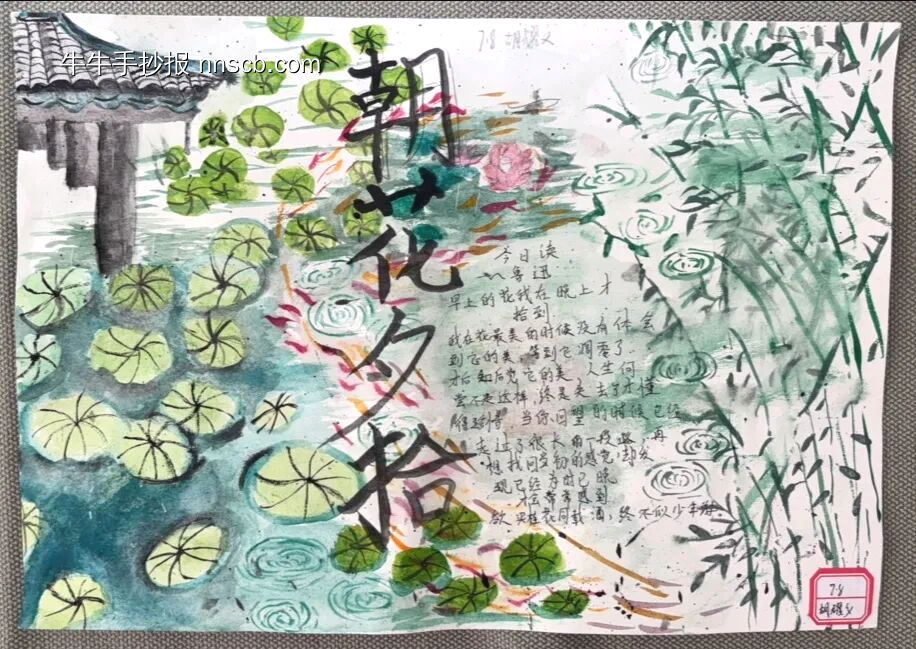 牛牛手抄报 nnscb.com
7.8 胡耀文
朝花夕拾
今日读
鲁迅
早上的花我在晚上才
拾到
我在花最美的时候没有体会
到它的美,等到它凋零了
才后知后觉它的美,人生何
尝不是这样,终是失去了才懂
得珍惜 当你回望的时候已经
走过了很长的一段路,再
想找回当初的感觉,却发
现已经为时已晚
才会常常感到
欲买桂花同载酒,终不似少年游
7.8
胡耀文